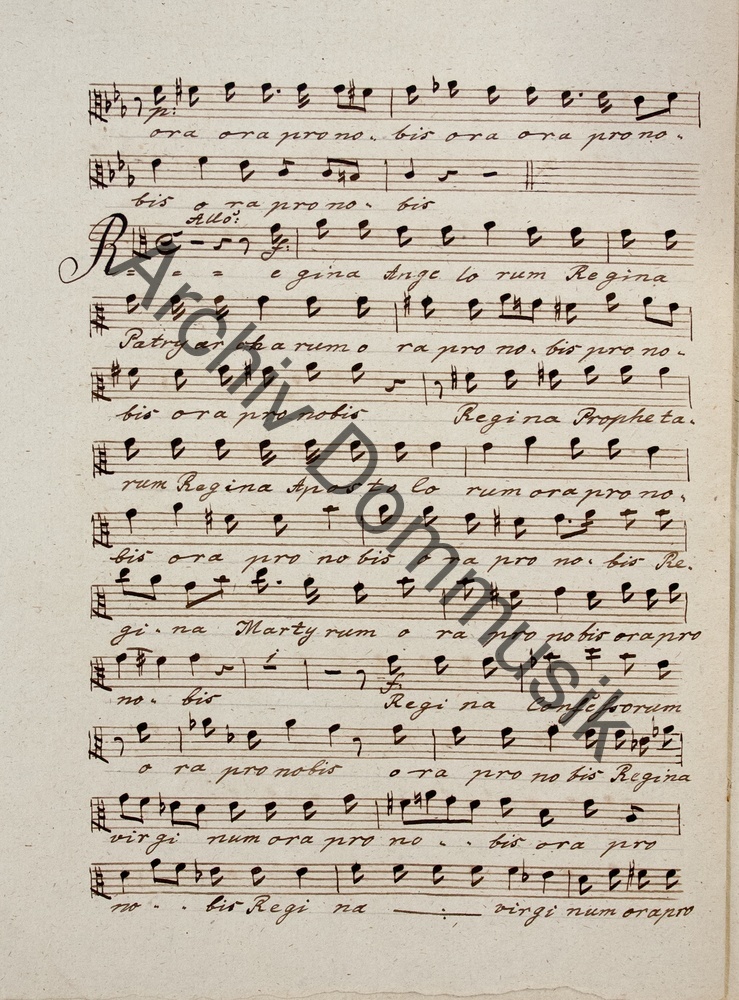 p:
ora ora pro no - bis ora ora pro no -
bis o ra pro no - bis
Allo:
R = = = e gina Ange lo rum Regina
f:
Patryar cha rum o ra pro no - bis pro no -
bis ora pro nobis Regina Propheta -
rum Regina Apos to lo rum ora pro no -
bis ora pro no bis o ra pro no - bis Re -
gi - na Marty rum o ra pro no bis ora pro
no - bis f: Regi na Confessorum
o ra pro nobis o ra pro no bis Regina
virgi num ora pro no - - bis ora pro
no - - bis Regi na virgi num ora pro
Archiv Dommusik